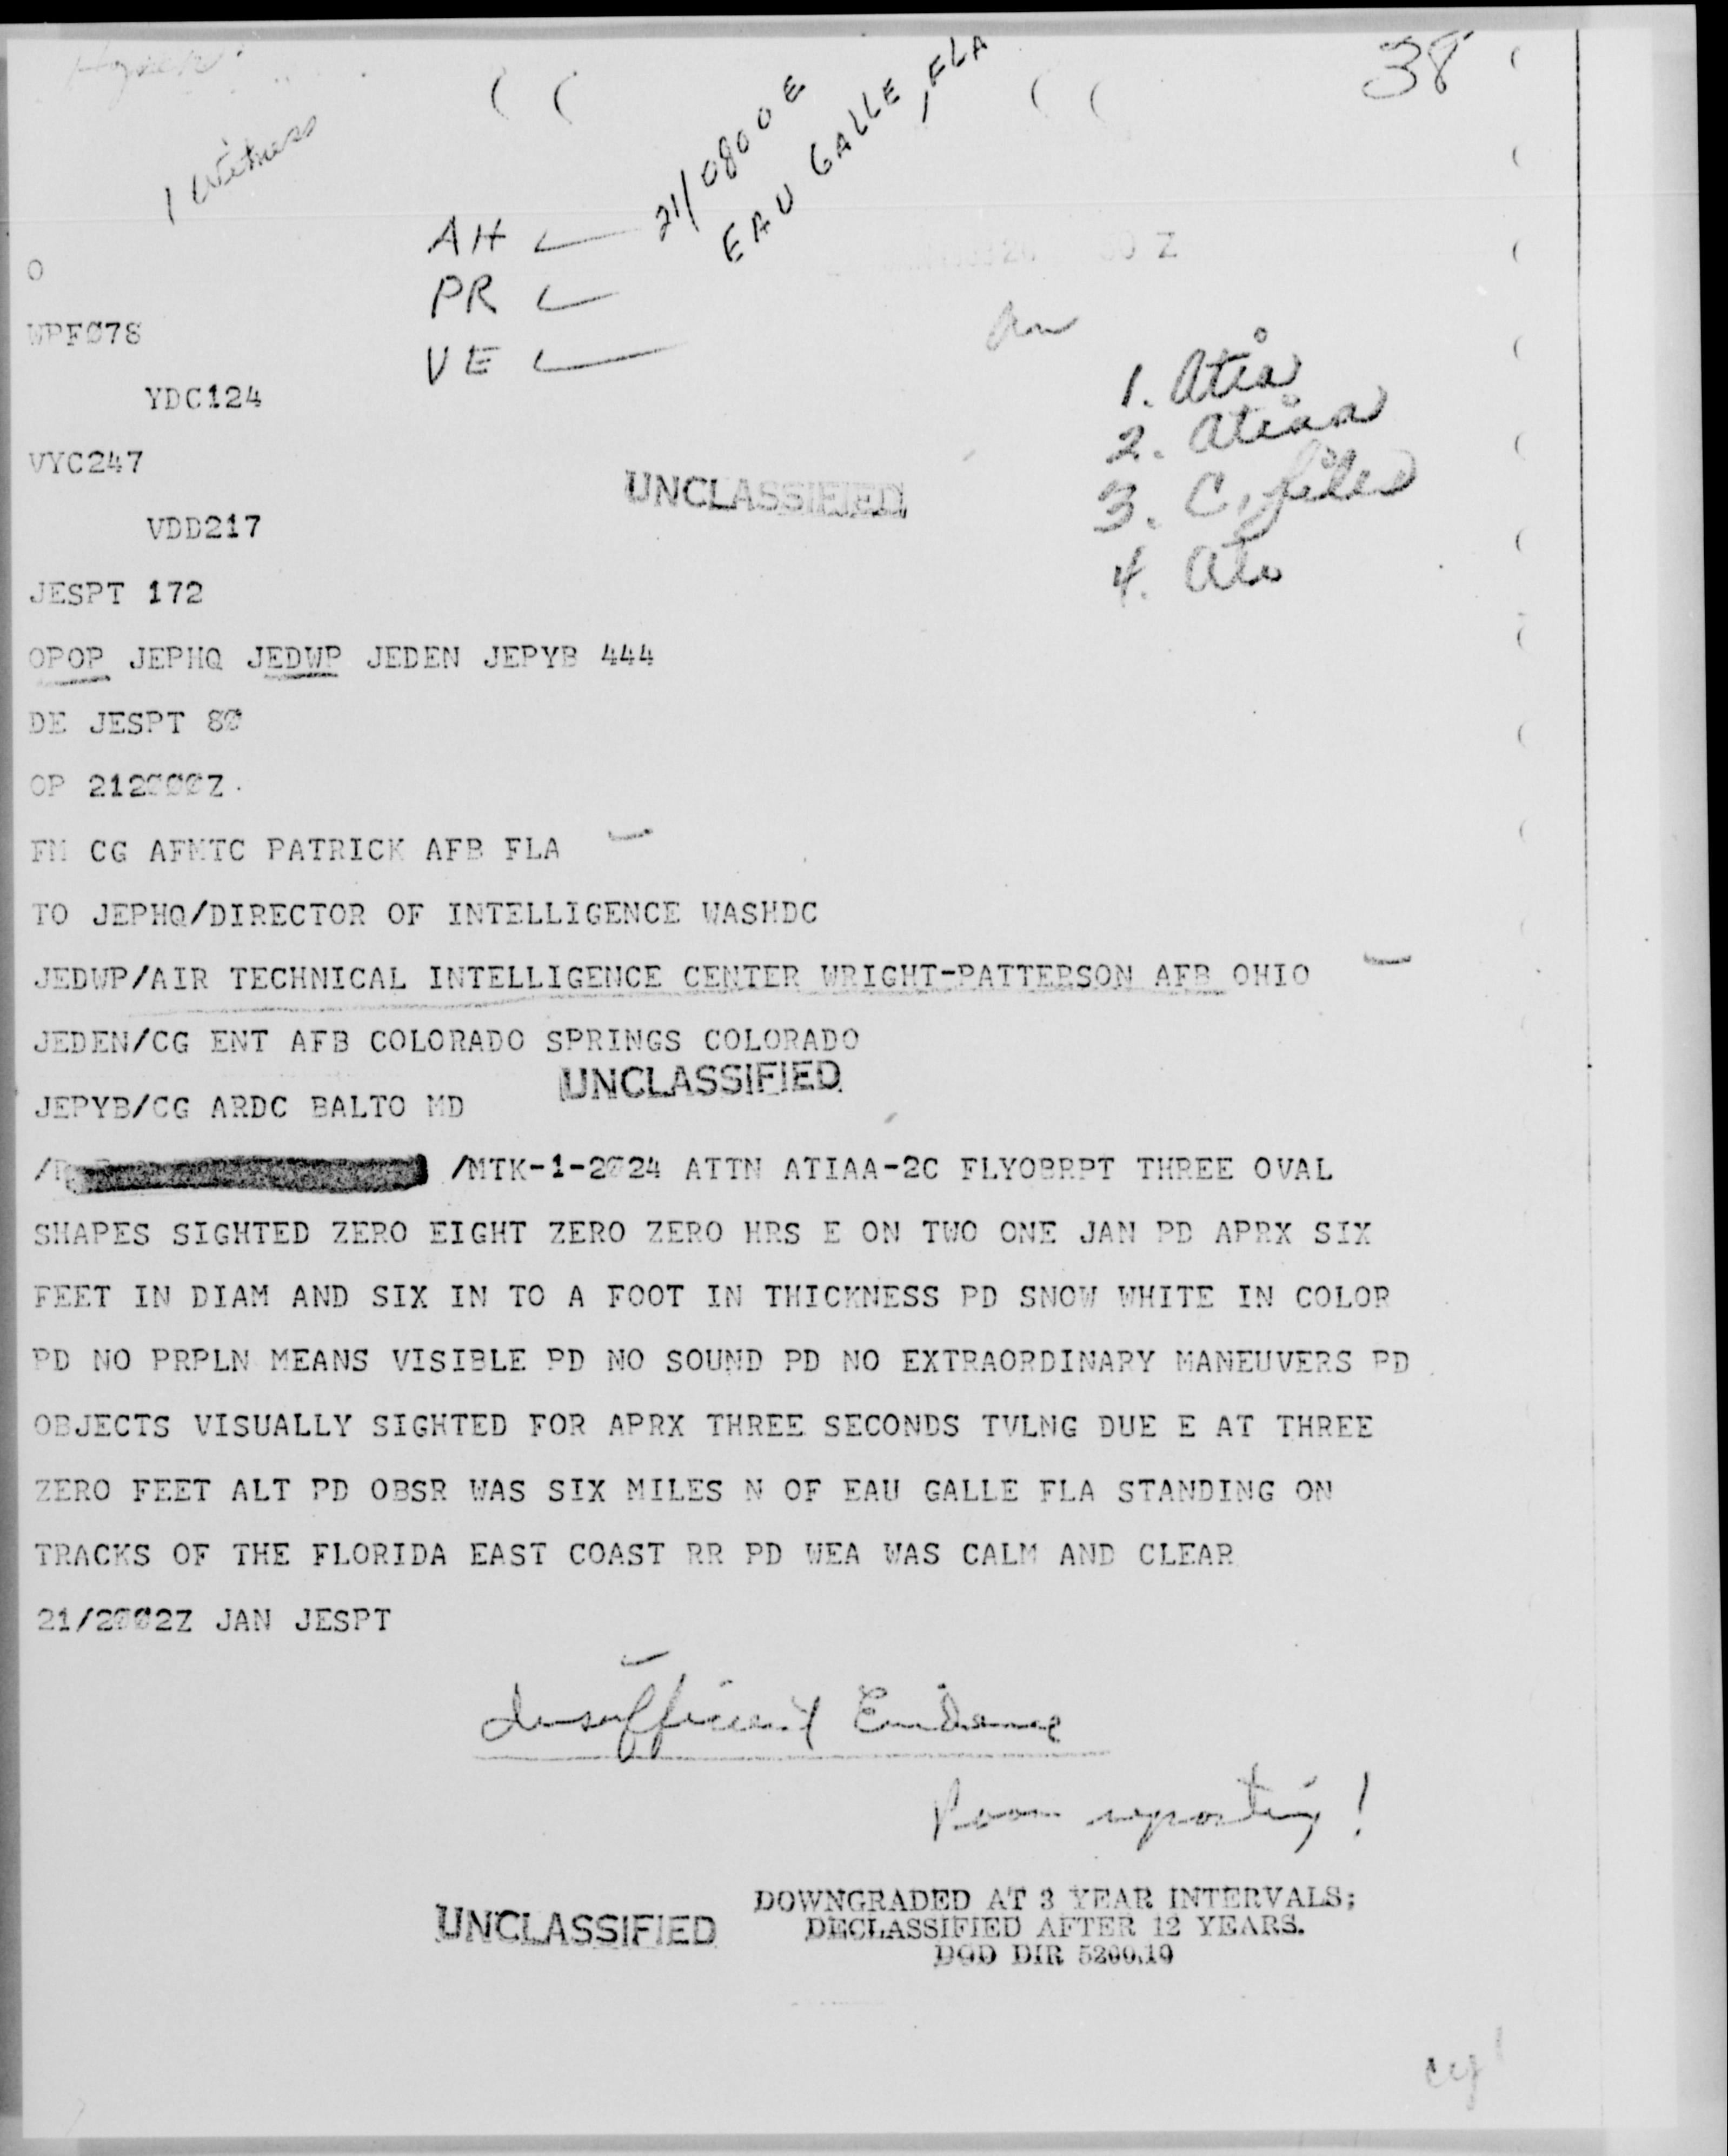 38
1 Witness
21/0800 E
EAU GALLE, FLA
AH
PR
VE
O
WPFØ78
YDC124
1. Atia
2. Atiaa
VYC247
3. C, files
UNCLASSIFIED
VDD217
4. Ate
JESPT 172
OPOP JEPHQ JEDWP JEDEN JEPYB 444
DE JESPT 8Ø
OP 212ØØØZ.
FM CG AFMTC PATRICK AFB FLA
TO JEPHQ/DIRECTOR OF INTELLIGENCE WASHDC
JEDWP/AIR TECHNICAL INTELLIGENCE CENTER WRIGHT-PATTERSON AFB OHIO
JEDEN/CG ENT AFB COLORADO SPRINGS COLORADO
UNCLASSIFIED
JEPYB/CG ARDC BALTO MD
/MTK-1-2Ø24 ATTN ATIAA-2C FLYOBRPT THREE OVAL
SHAPES SIGHTED ZERO EIGHT ZERO ZERO HRS E ON TWO ONE JAN PD APRX SIX
FEET IN DIAM AND SIX IN TO A FOOT IN THICKNESS PD SNOW WHITE IN COLOR
PD NO PRPLN MEANS VISIBLE PD NO SOUND PD NO EXTRAORDINARY MANEUVERS PD
OBJECTS VISUALLY SIGHTED FOR APRX THREE SECONDS TVLNG DUE E AT THREE
ZERO FEET ALT PD OBSR WAS SIX MILES N OF EAU GALLE FLA STANDING ON
TRACKS OF THE FLORIDA EAST COAST RR PD WEA WAS CALM AND CLEAR
21/2ØØ2Z JAN JESPT
Insufficient Evidence
Poor reporting!
UNCLASSIFIED
DOWNGRADED AT 3 YEAR INTERVALS;
DECLASSIFIED AFTER 12 YEARS.
DOD DIR 5200.10